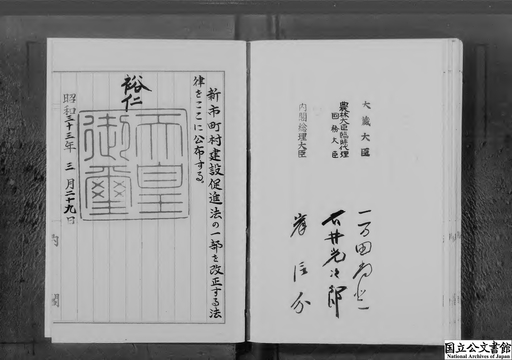 大蔵大臣
一万田尚登
農林大臣臨時代理
国務大臣
石井光次郎
内閣総理大臣
岸信介
新市町村建設促進法の一部を改正する法
律をここに公布する。
裕仁
天皇
御璽
昭和三十三年三月二十九日
内閣
国立公文書館
National Archives of Japan